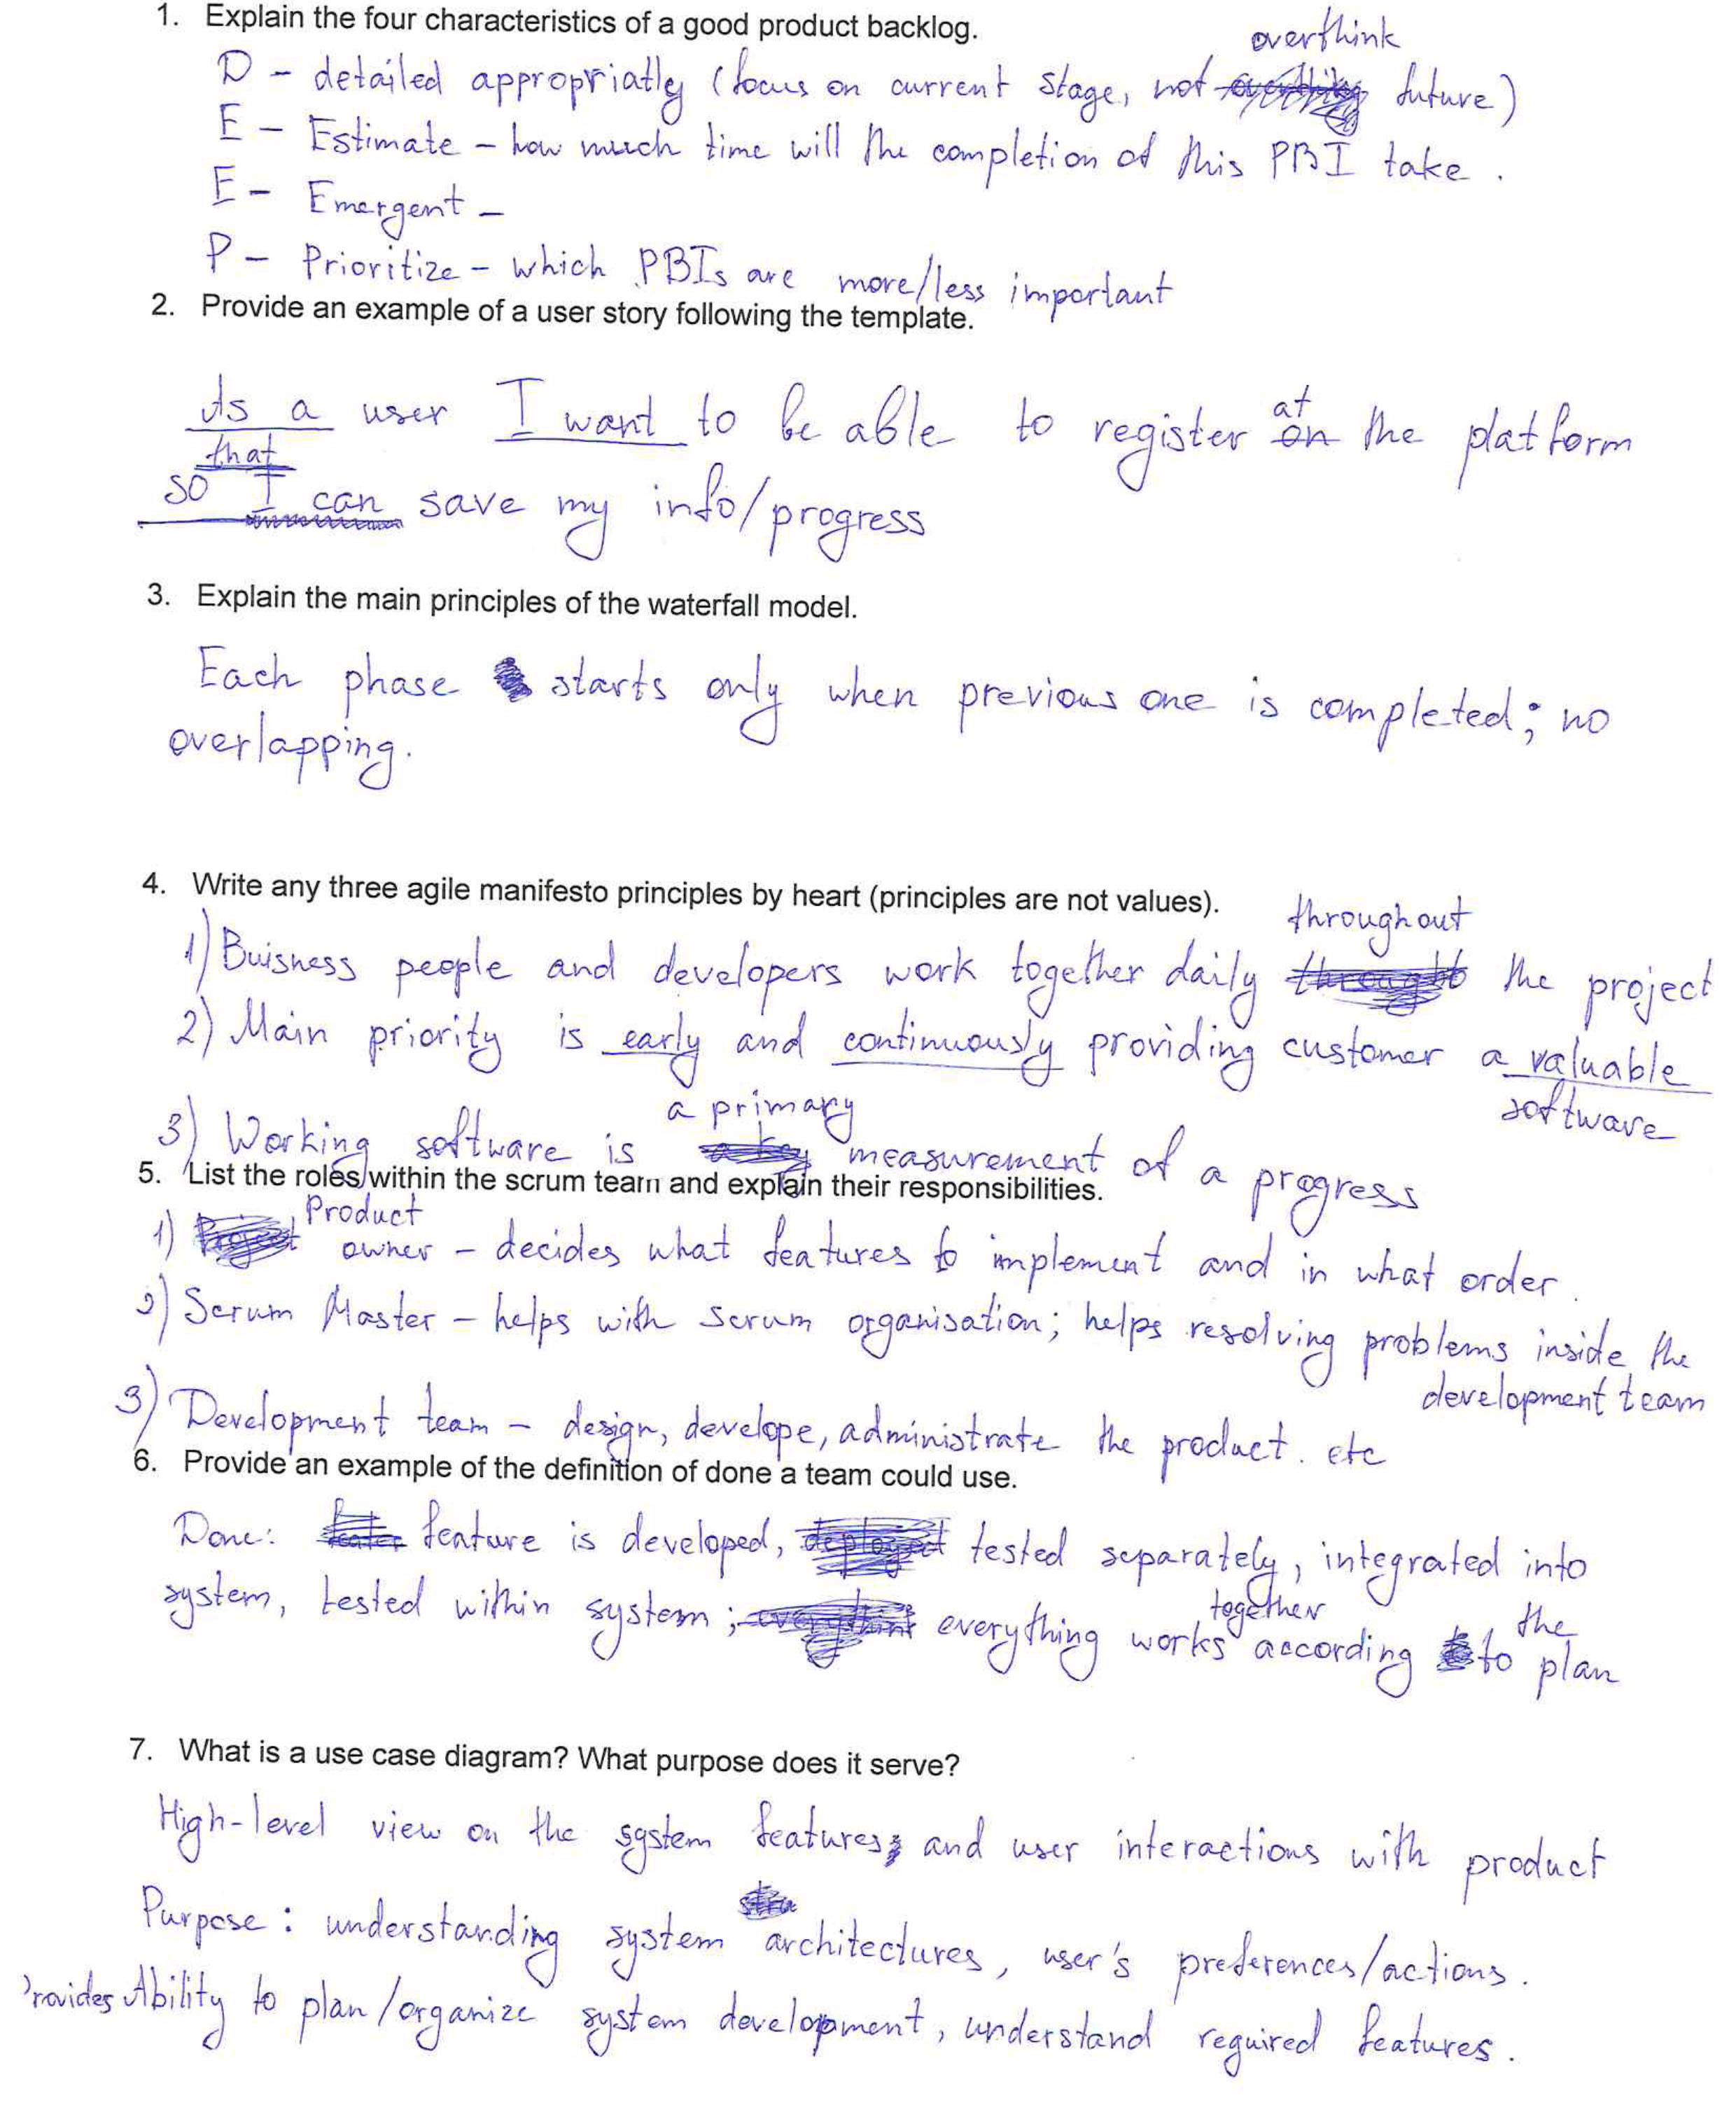 1. Explain the four characteristics of a good product backlog.
D - detailed appropriatly (focus on current stage, not overthink future)
E - Estimate - how much time will the completion of this PBI take.
E - Emergent -
P - Prioritize - which PBIs are more/less important
2. Provide an example of a user story following the template.
As a user I want to be able to register at on the platform
so that I can save my info/progress
3. Explain the main principles of the waterfall model.
Each phase starts only when previous one is completed; no
overlapping.
4. Write any three agile manifesto principles by heart (principles are not values).
1) Buisness people and developers work together daily throughout the project
2) Main priority is early and continuously providing customer a valuable
software
3) Working software is a primary measurement of a progress
5. List the roles within the scrum team and explain their responsibilities.
1) Product owner - decides what features to implement and in what order.
2) Scrum Master - helps with scrum organisation; helps resolving problems inside the
development team
3) Development team - design, develope, administrate the product. etc
6. Provide an example of the definition of done a team could use.
Done: feature is developed, tested separately, integrated into
system, tested within system; everything works together according to the plan
7. What is a use case diagram? What purpose does it serve?
High-level view on the system features, and user interactions with product
Purpose: understanding system architectures, user's preferences/actions.
rovides Ability to plan/organize system development, understand required features.